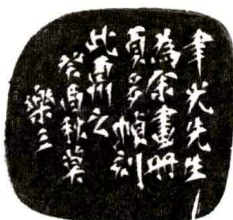 聿光先生
為余畫冊
頁多幀刻
此畀之
癸酉秋莫
樂三